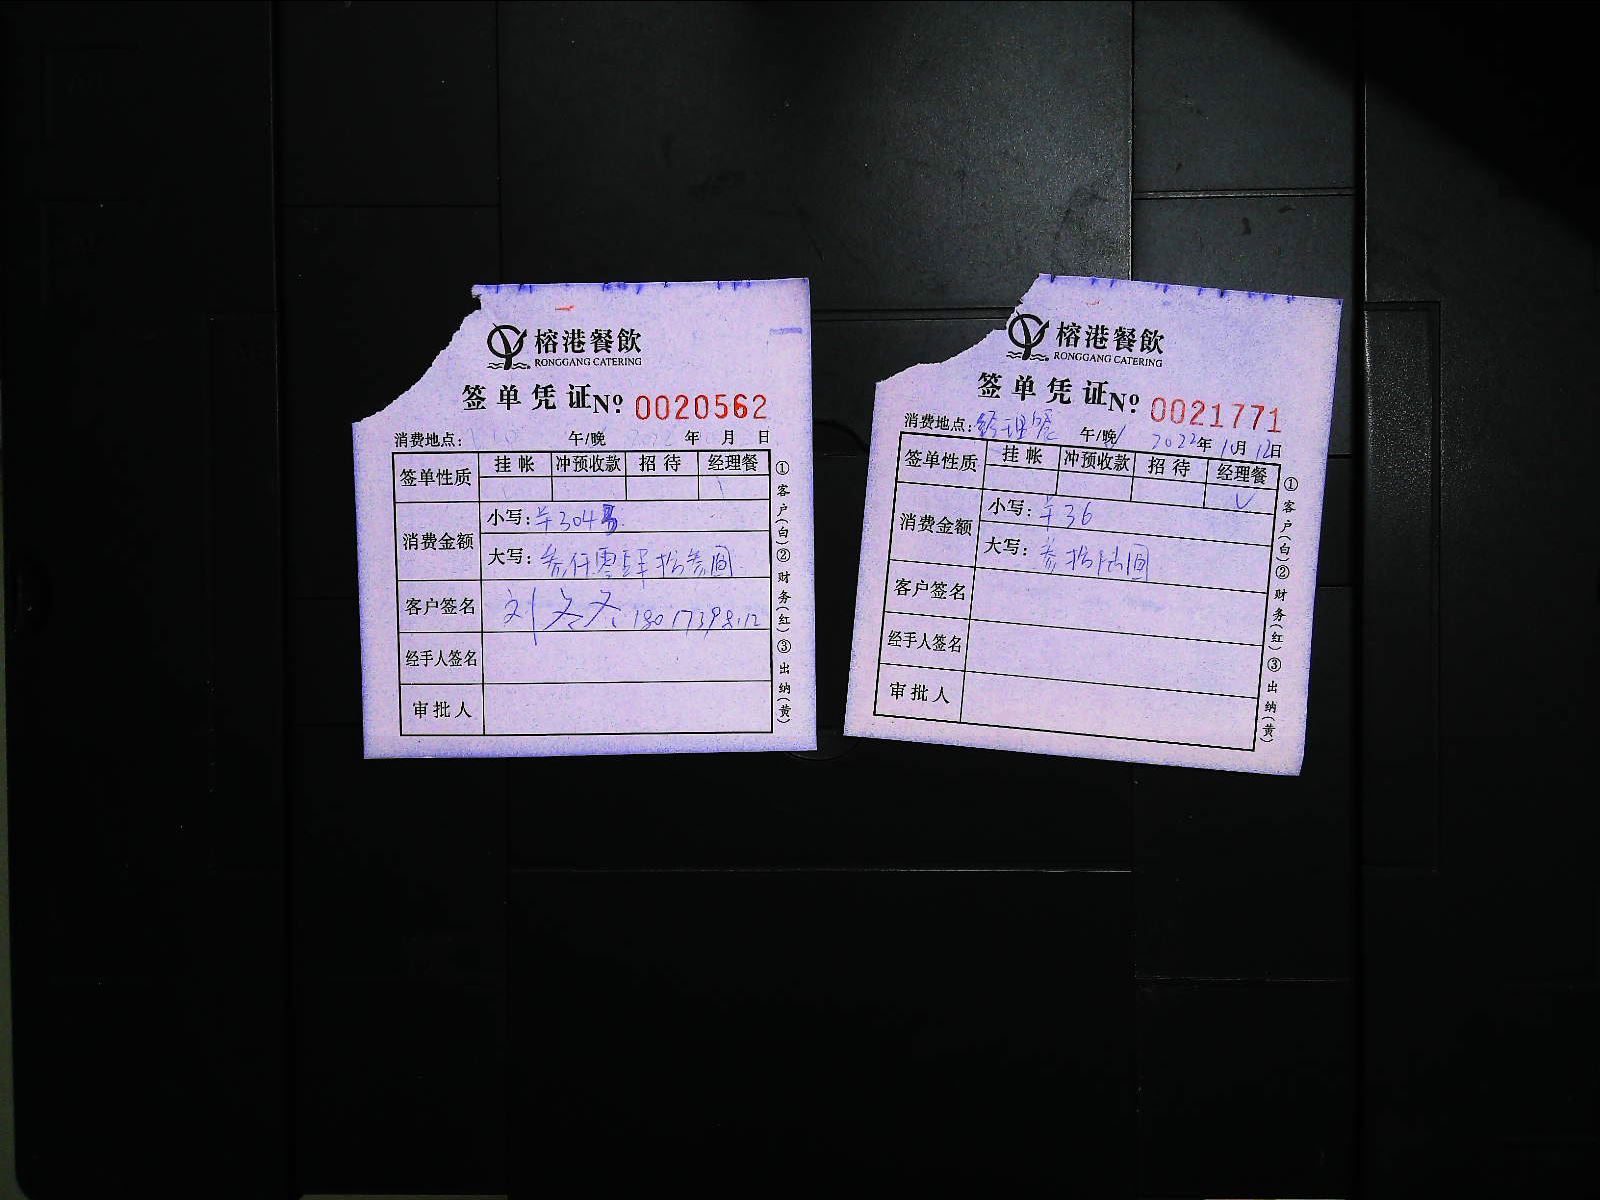 榕港餐飲
RONGGANG CATERING
签单凭证 № 0020562
消费地点： 午/晚 2022年 月 日
签单性质 挂帐 冲预收款 招待 经理餐
消费金额 小写：¥3043
大写：叁仟零肆拾叁圆
客户签名
经手人签名
审批人
①客户(白)②财务(红)③出纳(黄)
榕港餐飲
RONGGANG CATERING
签单凭证 № 0021771
消费地点：经理餐 午/晚 2022年10月12日
签单性质 挂帐 冲预收款 招待 经理餐
✓
消费金额 小写：¥36
大写：叁拾陆圆
客户签名
经手人签名
审批人
①客户(白)②财务(红)③出纳(黄)